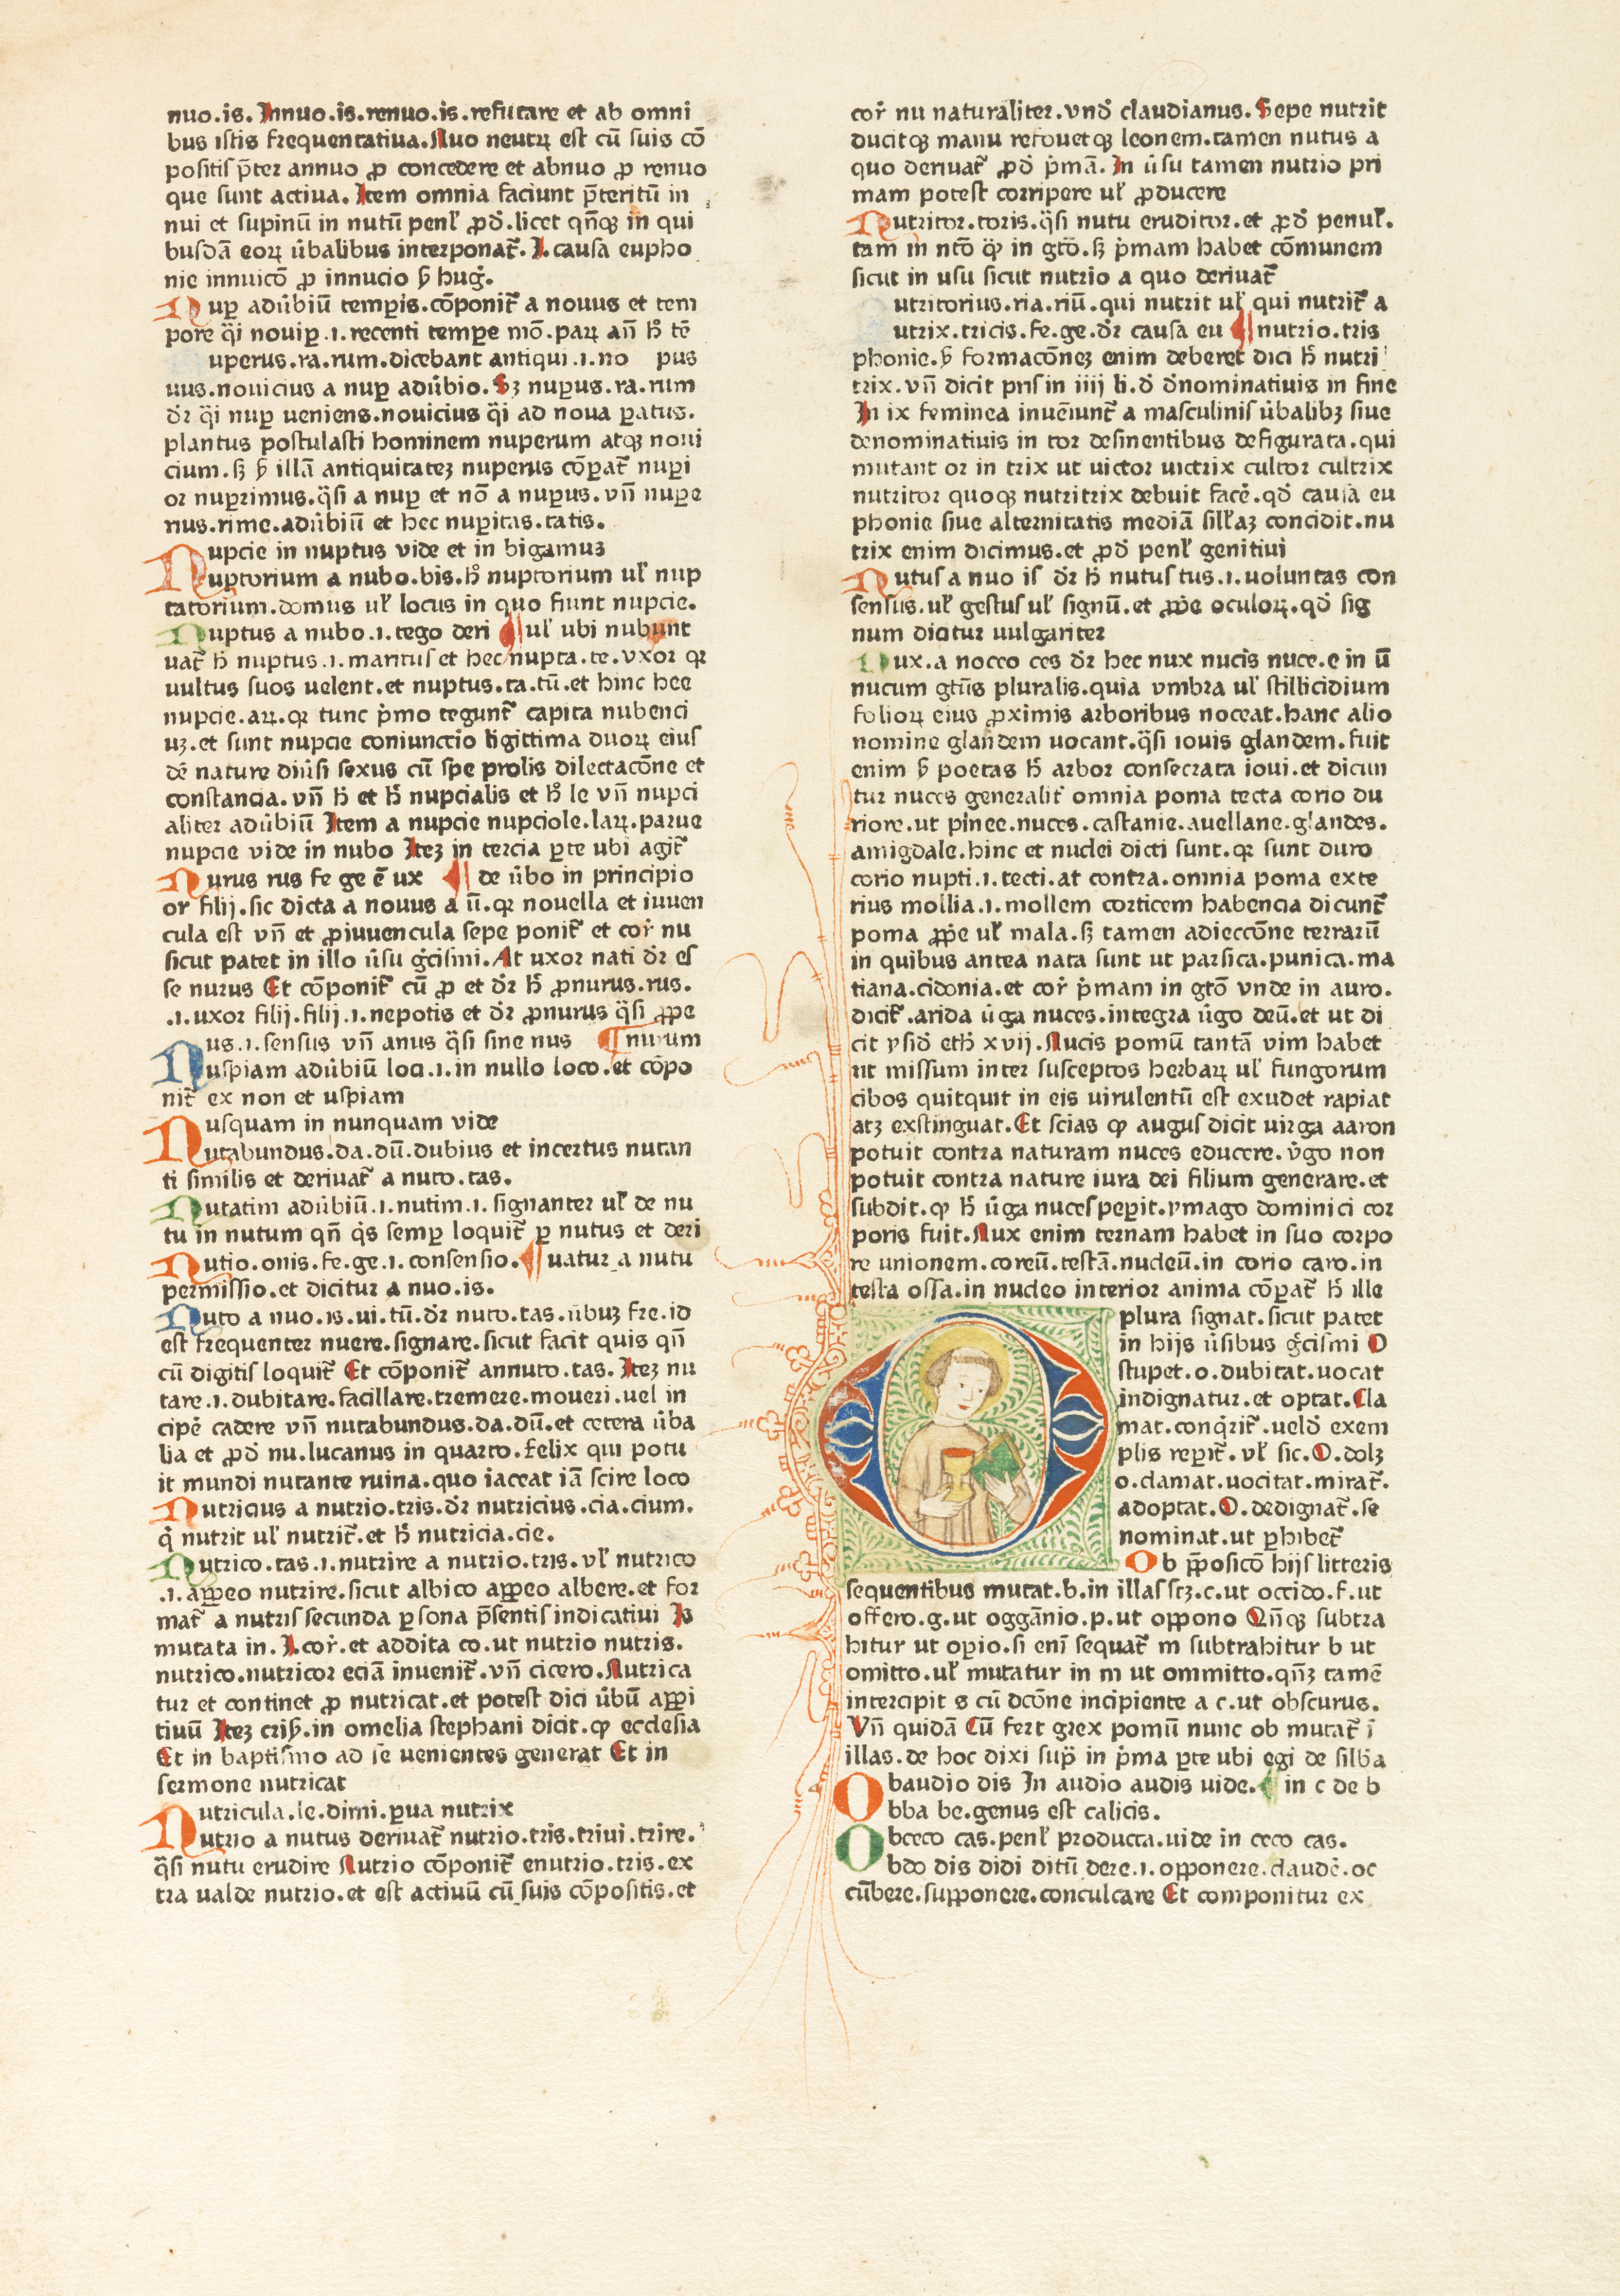 nuo.is. Innuo.is.renuo.is.refutare et ab omni
bus istis frequentatiua.Nuo neutꝝ est cū suis cō
positis p̄ter annuo ꝓ concedere et abnuo ꝓ renuo
que sunt actiua. Item omnia faciunt p̄teritū in
nui et supinū in nutū penł ꝓd̕.licet qn̄qꝫ in qui
busdā eoꝝ u̕balibus interponat᷑.I.causa eupho
nie innuicō ꝓ innucio ẜ hug̕.
Nuꝑ adu̕biū temꝑis.cōponit᷑ a nouus et tem
pore q̈i nouiꝑ.i.recenti tempe mō.paꝝ an̄ h̕ tē
uperus.ra.rum.dicebant antiqui.i.no pus
uus.nouicius a nuꝑ adu̕bio.Sꝫ nuꝑus.ra.rum
d̕r q̈i nuꝑ ueniens.nouicius q̈i ad noua ꝑatus.
plantus postulasti hominem nuperum atqꝫ noui
cium.sꝫ ẜ illā antiquitateꝫ nuperus cōꝑat᷑ nuꝑi
or nuꝑrimus.q̈si a nuꝑ et nō a nuꝑus.vn̄ nuꝑe
rius.rime.adu̕biū et hec nuꝑitas.tatis.
Nupcie in nuptus vide et in bigamuꝫ
uptorium a nubo.bis.h̕ nuptorium uł nup
tatorium.domus uł locus in quo fiunt nupcie.
Nuptus a nubo.i.tego deri ¶ uł ubi nubunt
uat᷑ h̕ nuptus.i.maritus et hec nupta.te.vxor qꝛ
uultus suos uelent.et nuptus.ta.tū.et hinc hee
nupcie.aꝝ.qꝛ tunc p̕mo tegunt᷑ capita nubenci
uꝫ.et sunt nupcie coniunctio ligittima duoꝝ eius
dē nature diu̕si sexus cū spe prolis dilectacōne et
constancia.vn̄ h̕ et h̕ nupcialis et h̕ le vn̄ nupci
aliter adu̕biū Item a nupcie nupciole.laꝝ.parue
nupcie vide in nubo Iteꝫ in tercia ꝑte ubi agit᷑
Nurus rus fe ge ē ux ¶ de u̕bo in principio
or filij.sic dicta a nouus a ū.qꝛ nouella et iuuen
cula est vn̄ et ꝓiuuencula sepe ponit᷑ et cor̕ nu
sicut patet in illo u̕su g̕cismi.At uxor nati d̕r es
se nurus Et cōponit᷑ cū ꝓ et d̕r h̕ ꝓnurus.rus.
.i.uxor filij.filij.i.nepotis et d̕r ꝓnurus q̈si ꝓpe
us.i.sensus vn̄ anus q̈si sine nus ¶ nurum
Nuspiam adu̕biū loci.i.in nullo loco.et cōpo
nit᷑ ex non et uspiam
Nusquam in nunquam vide
utabundus.da.dū.dubius et incertus nutan
ti similis et deriuat᷑ a nuto.tas.
Nutatim adu̕biū.i.nutim.i.signanter uł de nu
tu in nutum qn̄ q̕s semꝑ loquit᷑ ꝑ nutus et deri
Nutio.onis.fe.ge.i.consensio.¶ uatur a nutu
permissio.et dicitur a nuo.is.
Nuto a nuo.is.ui.tū.d̕r nuto.tas.u̕buꝫ fre.id
est frequenter nuere.signare.sicut facit quis qn̄
cū digitis loquit᷑ Et cōponit᷑ annuto.tas.Iteꝫ nu
tare.i.dubitare.facillare.tremere.moueri.uel in
cipe̕ cadere vn̄ nutabundus.da.dū.et cetera u̕ba
lia et ꝓd̕ nu.lucanus in quarto.felix qui potu
it mundi nutante ruina.quo iaceat iā scire loco
Nutricius a nutrio.tris.d̕r nutricius.cia.cium.
q̕ nutrit uł nutrit᷑.et h̕ nutricia.cie.
Nutrico.tas.i.nutrire a nutrio.tris.vł nutrico
.i.aꝓpeo nutrire.sicut albico aꝓpeo albere.et for
mat᷑ a nutris secunda ꝑsona p̄sentis indicatiui Is
mutata in.I.cor̕.et addita co.ut nutrio nutris.
nutrico.nutricor eciā inuenit᷑.vn̄ cicero.Nutrica
tur et continet ꝓ nutricat.et potest dici u̕bū aꝓpi
tiuū Iteꝫ criẜ.in omelia stephani dicit.qꝫ ecclesia
Et in baptismo ad se uenientes generat Et in
sermone nutricat
Nutricula.le.dimi.ꝑua nutrix
utrio a nutus deriuat᷑ nutrio.tris.triui.trire.
q̈si nutu erudire Nutrio cōponit᷑ enutrio.tris.ex
tra ualde nutrio.et est actiuū cū suis cōpositis.et
cor̕ nu naturaliter.vnd̕ claudianus.Sepe nutrit
ducitqꝫ manu refouetqꝫ leonem.tamen nutus a
quo deriuat᷑ ꝓd̕ p̕mā.In u̕su tamen nutrio pri
mam potest corripere uł ꝓducere
Nutritor.toris.q̈si nutu eruditor.et ꝓd̕ penuł.
tam in nt̄o qꝫ in gt̄o.sꝫ p̕mam habet cōmunem
sicut in usu sicut nutrio a quo deriuat᷑
utritorius.ria.riū.qui nutrit uł qui nutrit᷑ a
utrix.tricis.fe.ge.d̕r causa eu ¶ nutrio.tris
phonie.ẜ formacōneꝫ enim deberet dici h̕ nutri
trix.vn̄ dicit pris in iiij li.d̕ d̕nominatiuis in fine
In ix feminea inueīunt᷑ a masculinis u̕balibꝫ siue
denominatiuis in tor desinentibus defigurata.qui
mutant or in trix ut uictor uictrix cultor cultrix
nutritor quoqꝫ nutritrix debuit face̕.qd̕ causa eu
phonie siue alternitatis mediā siłłaꝫ concidit.nu
trix enim dicimus.et ꝓd̕ penł genitiui
Nutus a nuo is d̕r h̕ nutus tus.i.uoluntas con
sensus.uł gestus uł signū.et ꝓpe̕ oculoꝝ.qd̕ sig
num dicitur uulgariter
Nux.a noceo ces d̕r hec nux nucis nuce.e in ū
nucum gtūs pluralis.quia vmbra uł stillicidium
folioꝝ eius ꝓximis arboribus noceat.hanc alio
nomine glandem uocant.q̈si iouis glandem.fuit
enim ẜ poetas h̕ arbor consecrata ioui.et dicun
tur nuces generalit᷑ omnia poma tecta corio du
riore.ut pinee.nuces.castanie.auellane.glandes.
amigdale.hinc et nuclei dicti sunt.qꝛ sunt duro
corio nupti.i.tecti.at contra.omnia poma exte
rius mollia.i.mollem corticem habencia dicunt᷑
poma ꝓpe̕ uł mala.sꝫ tamen adieccōne terrarū
in quibus antea nata sunt ut parsica.punica.ma
tiana.cidonia.et cor̕ p̕mam in gt̄o vnde in auro.
dicit᷑.arida u̕ga nuces.integra u̕go deū.et ut di
cit ysid̕ eth̕ xvij.Nucis pomū tantā vim habet
ut missum inter susceptos herbaꝝ uł fungorum
cibos quitquit in eis uirulentū est exudet rapiat
atꝫ exstinguat.Et scias qꝫ augus dicit uirga aaron
potuit contra naturam nuces educere.v̕go non
potuit contra nature iura dei filium generare.et
subdit.qꝫ h̕ u̕ga nuces peperit.ymago dominici cor
poris fuit.Nux enim ternam habet in suo corpo
re unionem.coreū.testā.nucleū.in corio caro.in
testa ossa.in nucleo interior anima cōꝑat᷑ h̕ ille
plura signat.sicut patet
in hijs u̕sibus g̕cismi O
stupet.o.dubitat.uocat
indignatur.et optat.Cla
mat.conq̕rit᷑.ueld̕ exem
plis reperit᷑.vł sic.O.dolꝫ
o.clamat.uocitat.mirat᷑.
adoptat.O.dedignat᷑.se
nominat.ut ꝑhibet᷑
Ob p̄posicō hijs litteris
sequentibus mutat.b.in illas scꝫ.c.ut occido.f.ut
offero.g.ut oggānio.p.ut oppono Qn̄qꝫ subtra
hitur ut operio.si eni sequat᷑ m subtrahitur b ut
omitto.uł mutatur in m ut ommitto.qn̄ꝫ tamē
intercipit s cū dcōne incipiente a c.ut obscurus.
Vn̄ quidā Cū fert grex pomū nunc ob mutat᷑ ī
illas.de hoc dixi sup̄ in p̕ma ꝑte ubi egi de silłba
Obaudio dis In audio audis uide.¶ in c de b
bba be.genus est calicis.
Obceco cas.penł producta.uide in ceco cas.
bdo dis didi ditū dere.i.opponere.claude̕.oc
cūbere.supponere.conculcare Et componitur ex